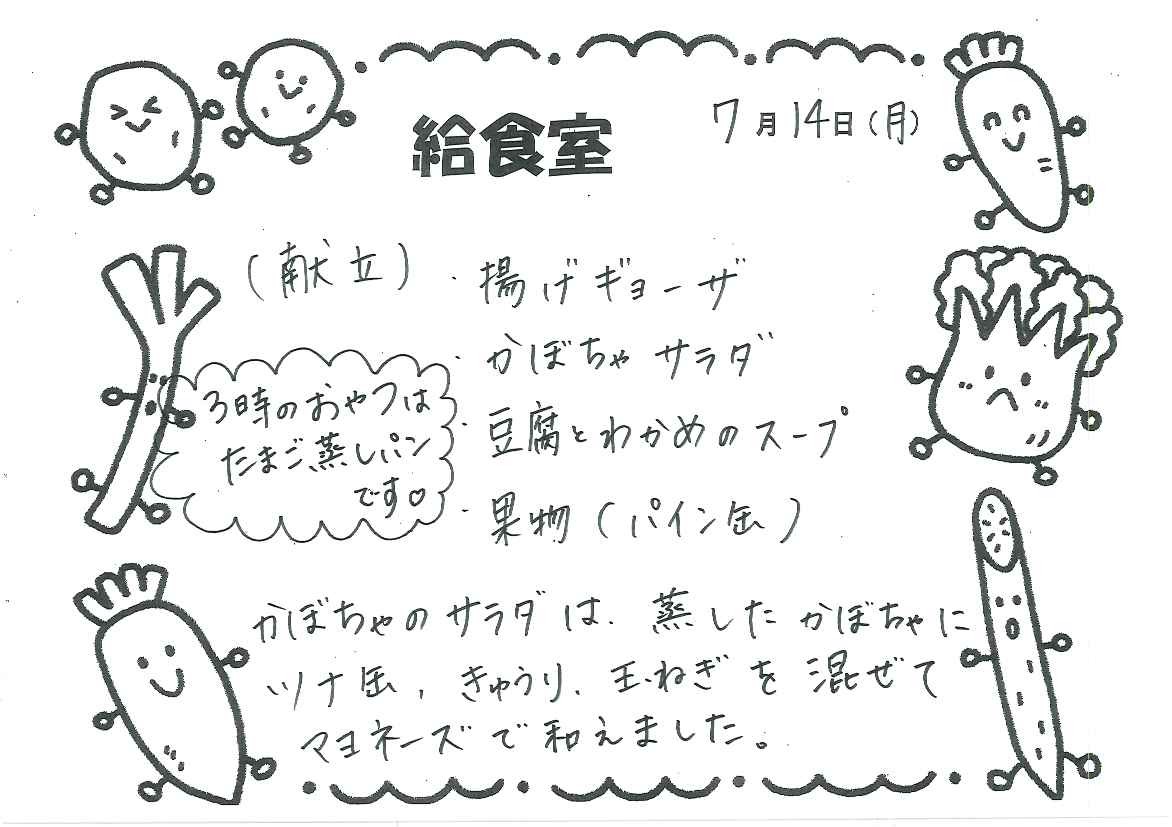 給食室
7月14日(月)
(献立)
・揚げギョーザ
・かぼちゃサラダ
・豆腐とわかめのスープ
・果物(パイン缶)
3時のおやつは
たまご蒸しパン
です♡
かぼちゃのサラダは、蒸したかぼちゃに
ツナ缶、きゅうり、玉ねぎを混ぜて
マヨネーズで和えました。